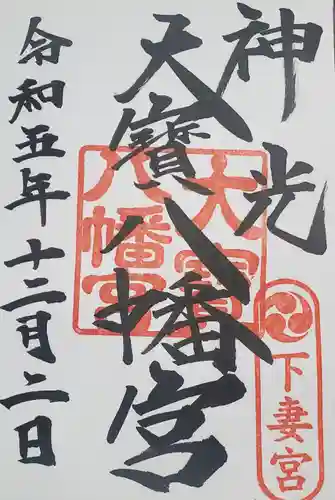 神光
天寳八幡宮
令和五年十二月二日
大寳
八幡宮
下妻宮